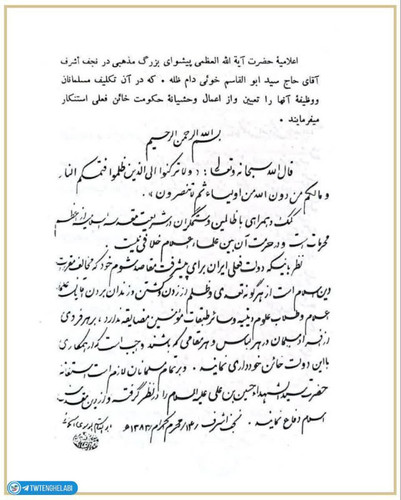 اعلامیهٔ حضرت آیة الله العظمی پیشوای بزرگ مذهبی در نجف أشرف
آقای حاج سید ابو القاسم خوئی دام ظله . که در آن تکلیف مسلمانان
ووظیفهٔ آنها را تعیین واز اعمال وحشیانهٔ حکومت خائن فعلی استنکار
میفرمایند .
بسم الله الرحمن الرحیم
قال الله سبحانه وتعالی : « ولا ترکنوا الی الذین ظلموا فتمسکم النار
و مالکم من دون الله من اولیاء ثم لا تنصرون » .
کمک و همراهی با ظالمین و ستمگران در شریعت مقدسه اسلامیه از اعظم
محرمات است و در حرمت آن بین علماء اسلام خلافی نیست .
نظر باینکه دولت فعلی ایران برای پیشرفت مقاصد شوم خود که مخالف مقررات
دین اسلام است از هرگونه تعدی و ظلم از زدن و کشتن و زندان بردن
و طلاب علوم دینیه و سائر طبقات مؤمنین مضایقه ندارد ، بر هر فردی
از افراد مسلمان در هر لباس و هر مقامی که باشند واجب است که از همکاری
با این دولت خائن خودداری نمایند . و بر تمام مسلمانان لازم است استغاثه
حضرت سید الشهداء حسین بن علی علیه السلام را در نظر گرفته و از دین مقدس
اسلام دفاع نمایند . نجف اشرف محرم الحرام ۱۳۸۳
TWTENGHELABI